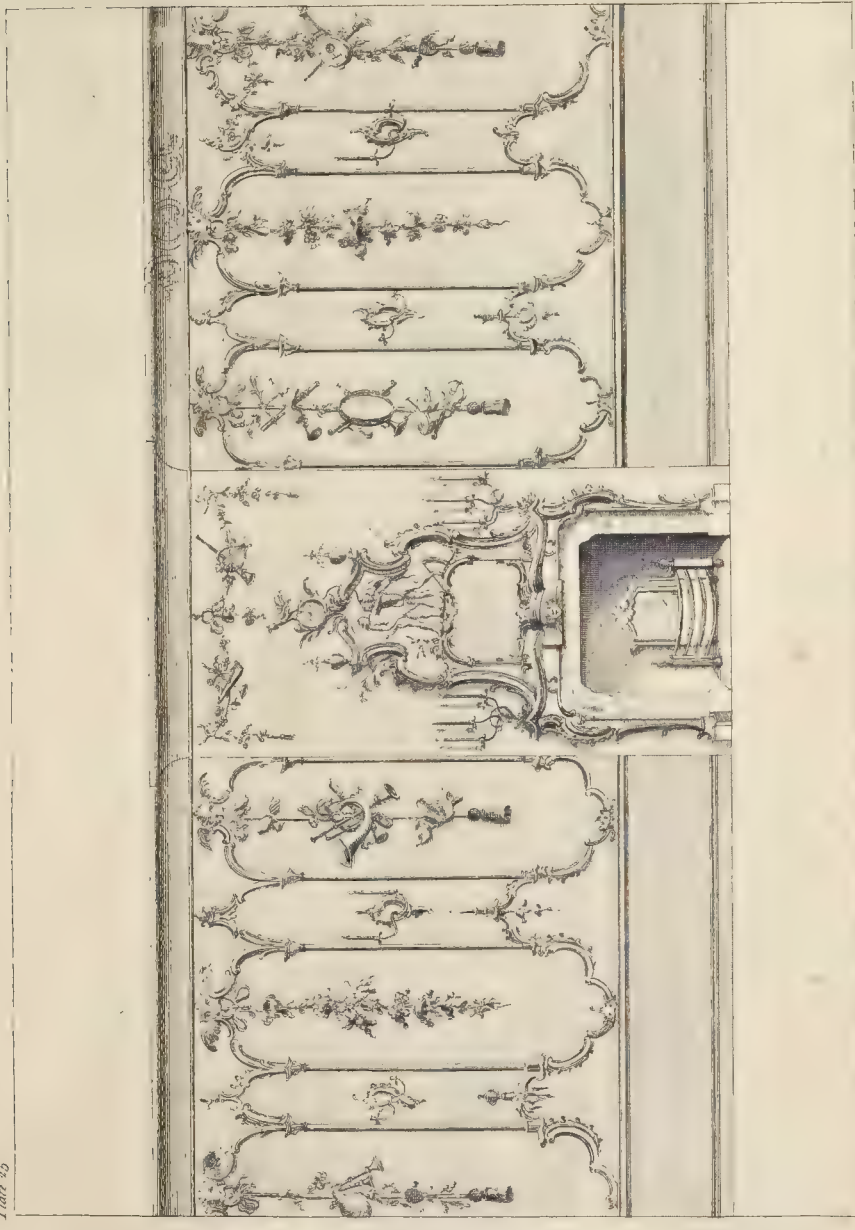 Plate 25